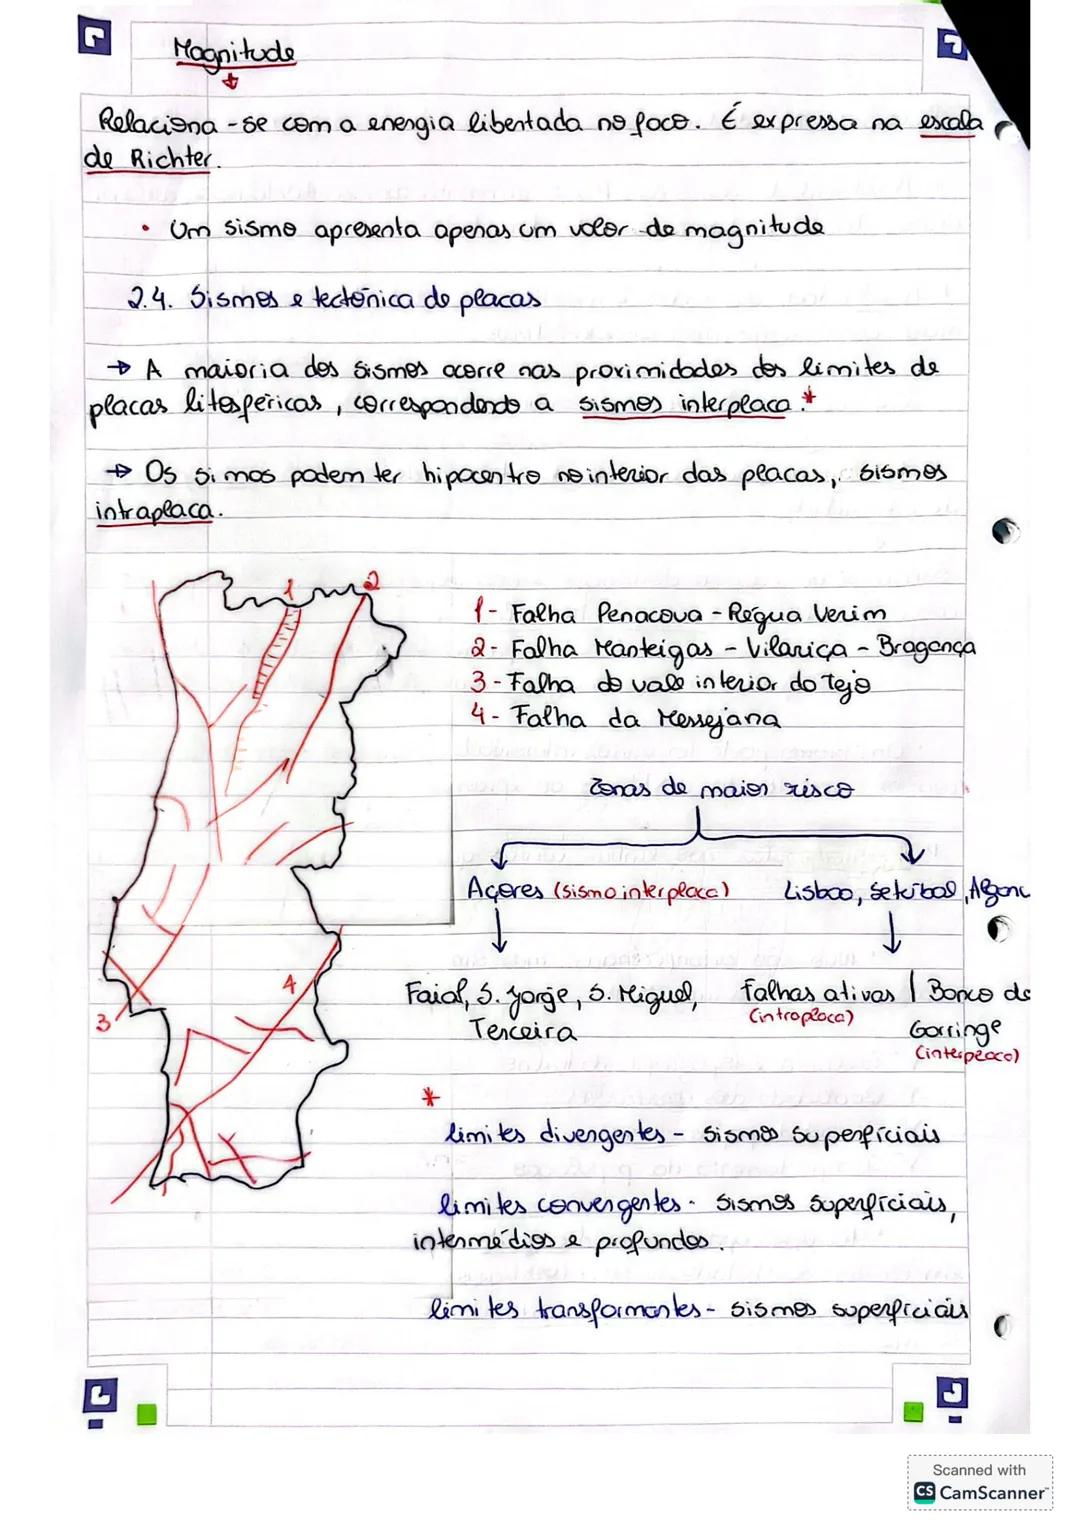 Magnitude
Relaciona-se com a energia libertada no foco. É expressa na escala
de Richter.
• Um sismo apresenta apenas um valor de magnitude
2.4. Sismos e tectónica de placas
→ A maioria dos sismos ocorre nas proximidades dos limites de
placas litosféricas, correspondendo a sismos interplaca.*
→ Os simos podem ter hipocentro no interior das placas, sismos
intraplaca.
1 2
1- Falha Penacova - Régua Verim
2- Falha Manteigas - Vilariça - Bragança
3- Falha do vale inferior do Tejo
4- Falha da Messejana
Zonas de maior risco
Açores (sismo interplaca) Lisboa, Setúbal,
4
3
Faial, S. Jorge, S. Miguel, Falhas ativas | Banco de
Terceira (intraplaca) Gorringe
(interplaca)
*
limites divergentes - sismos superficiais
limites convergentes - sismos superficiais,
intermédios e profundos.
limites transformantes - sismos superficiais
Scanned with
CS CamScanner